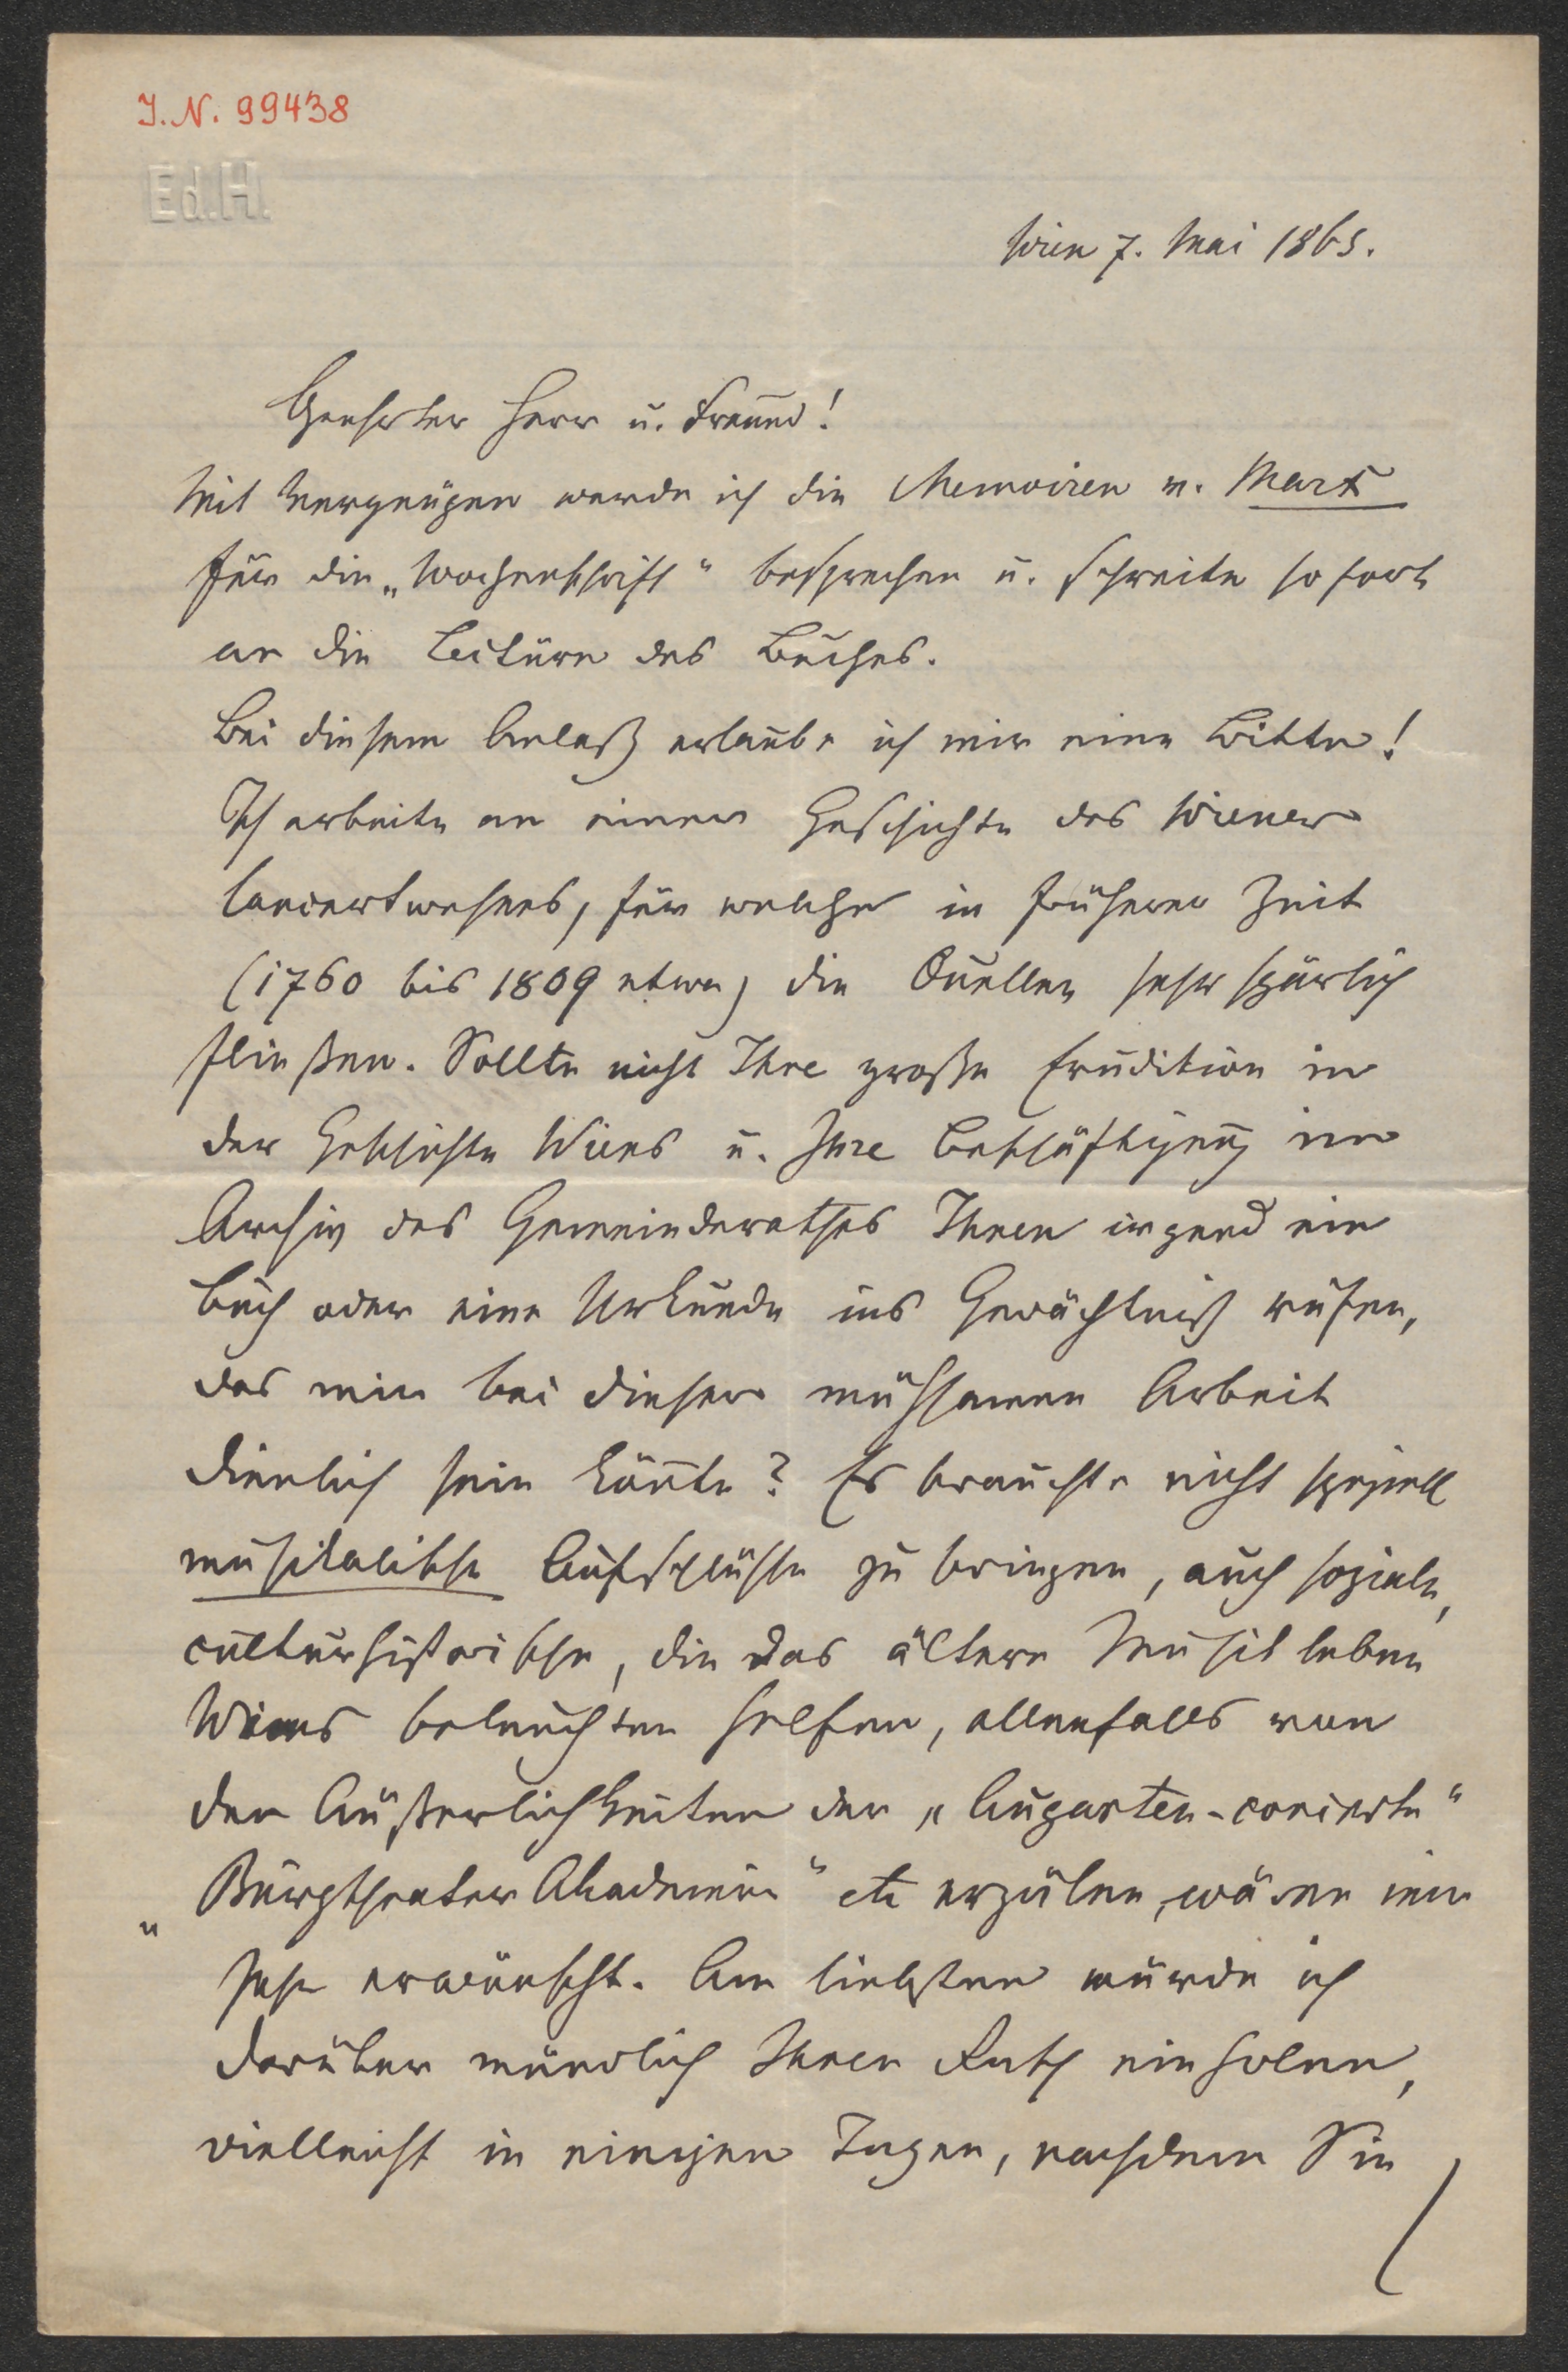 I.N. 99438
Ed.H.
Wien 7. Mai 1865.
Geehrter Herr u. Freund!
Mit Vergnügen werde ich die Memoiren v. Marx
für die „Wochenschrift“ besprechen u. schreite sofort
an die Lectüre des Buches.
Bei diesem Anlaß erlaube ich mir eine Bitte!
Ich arbeite an einer Geschichte des Wiener
Concertwesens, für welche in früherer Zeit
(1760 bis 1809 etwa) die Quellen sehr spärlich
fließen. Sollte nicht Ihre große Erudition in
der Geschichte Wiens u. Ihre Beschäftigung im
Archiv des Gemeinderathes Ihnen irgend ein
Buch oder eine Urkunde ins Gedächtniß rufen,
das mir bei dieser mühsamen Arbeit
dienlich sein könnte? Es brauchte nicht speziell
musikalische Aufschlüsse zu bringen, auch soziale,
culturhistorische, die das ältere Musikleben
Wiens beleuchten helfen, allenfalls von
den Äußerlichkeiten der „Augarten-concerte“
„Burgtheater Akademien“ etc erzälen, wären mir
sehr erwünscht. Am liebsten würde ich
darüber mündlich Ihren Rath einholen,
vielleicht in einigen Tagen, nachdem Sie